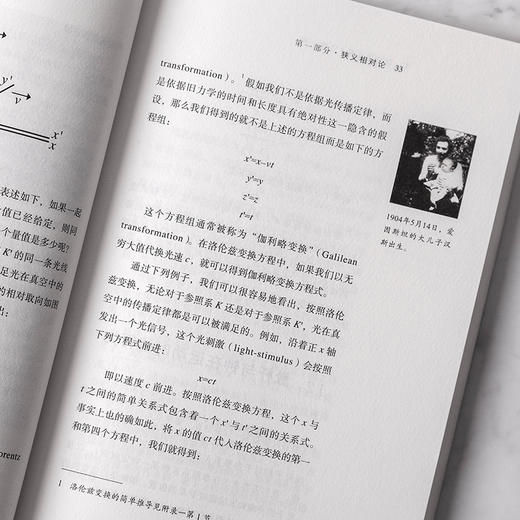 y'
y
x'
x
表述如下，如果一起
值已经给定，则同
个量值是多少呢？
K' 的同一条光线
足光在真空中的
的相对取向如图
出：
orentz
第一部分·狭义相对论 33
transformation）。¹假如我们不是依据光传播定律，而
是依据旧力学的时间和长度具有绝对性这一隐含的假
设，那么我们得到的就不是上述的方程组而是如下的方
程组：
x'=x–vt
y'=y
z'=z
t'=t
这个方程组通常被称为“伽利略变换”（Galilean
transformation）。在洛伦兹变换方程中，如果我们以无
穷大值代换光速 c，就可以得到伽利略变换方程式。
通过下列例子，我们可以很容易地看出，按照洛伦
兹变换，无论对于参照系 K 还是对于参照系 K'，光在真
空中的传播定律都是可以被满足的。例如，沿着正 x 轴
发出一个光信号，这个光刺激（light-stimulus）会按照
下列方程式前进：
x=ct
即以速度 c 前进。按照洛伦兹变换方程，这个 x 与
t 之间的简单关系式包含着一个 x' 与 t' 之间的关系式。
事实上也的确如此，将 x 的值 ct 代入洛伦兹变换的第一
和第四个方程中，我们就得到：
1 洛伦兹变换的简单推导见附录一第 1 节
1904年5月14日，爱
因斯坦的大儿子汉
斯出生。